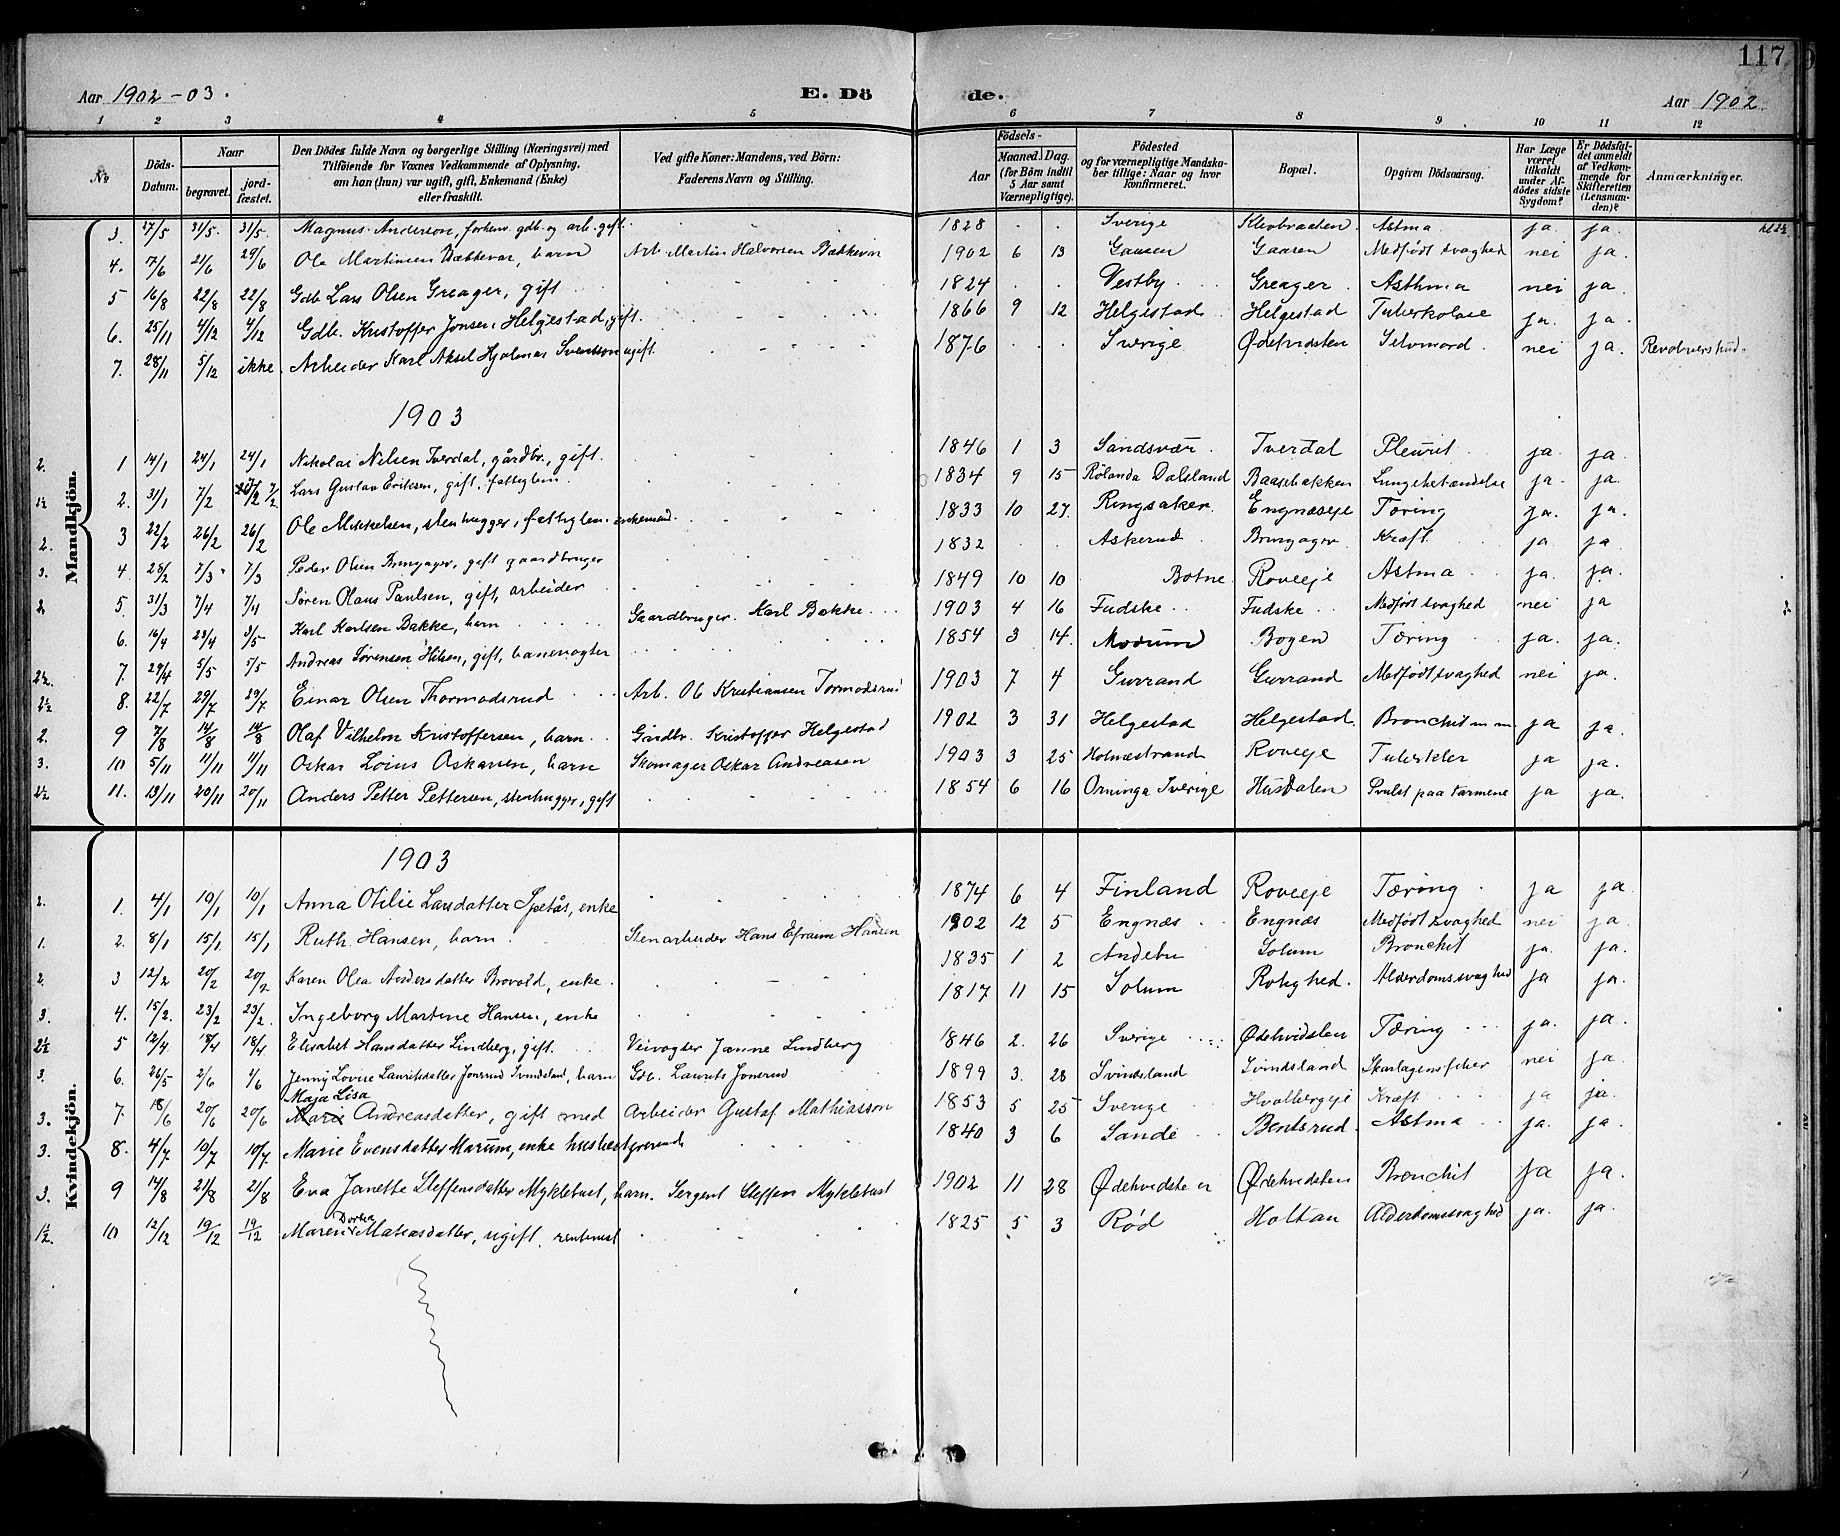 117
Aar 1902-03. E. Dö de. Aar 1902.
1 2 3 4 5 6 7 8 9 10 11 12
№ Döds-Datum. Naar begravet. jord-fæstet. Den Dödes fulde Navn og borgerlige Stilling (Næringsvei) med Tilföiende for Voxnes Vedkommende af Oplysning, om han (hun) var ugift, gift, Enkemand (Enke) eller fraskilt. Ved gifte Koner: Mandens, ved Börn: Faderens Navn og Stilling. Födsels- Aar Maaned. Dag. (for Börn indtil 5 Aar samt Værnepligtige). Födested og for værnepligtige Mandskaber tillige: Naar og hvor konfirmeret. Bopæl. Opgiven Dödsaarsag. Har Læge været tilkaldt under Afdödes sidste Sygdom? Er Dödsfaldet anmeldt af Vedkommende for Skifteretten (Lensmanden)? Anmærkninger.
Mandkjön.
3. 27/5 31/5. 31/5. Magnus Anderson, forhenv. gdb. og arb. gift. 1828 Sverige Klevbraaten Astma ja. ja.
4. 7/6 21/6 29/6 Ole Martinsen Bækkevar, barn Arb. Martin Halvorsen Bækkevar 1902 6 13 Gaasen Gaasen Medfödt svaghed nei ja.
5 16/8 22/8 22/8 Gdb. Lars Olsen Greager, gift 1824 Vestby Greager Asthma nei ja.
6. 25/11 4/12 4/12 Gdb. Kristoffer Jonsen Helgestad, gift. 1866 9 12 Helgestad Helgestad Tuberkolose ja. ja.
7. 28/11 5/12 ikke. Arbeider Karl Aksel Hjalmar Svenson ugift. 1876 Sverige Ødehvidsten Selvmord nei ja. Revolverskud.
1903
2. 1 14/1 24/1 24/1 Nikolai Nilsen Tverdal, gårdbr., gift. 1846 1 3 Sandsvær Tverdal Pleurit ja. ja.
1½ 2. 31/1 7/2 7/2 Lars Gustav Eriksen, gift, fattiglem. 1834 9 15 Rølanda Dalsland Baasebakken Lungebetændelse ja. ja.
2. 3 22/2 26/2 26/2 Ole Mikkelsen, stenhugger, fattiglem. enkemand. 1833 10 27. Ringsaker Engnæseje Tæring ja. ja.
3. 4. 28/2 7/3 7/3 Peder Olsen Bringager, gift gaardbruger 1832 Askerud Bringager Kræft ja ja
2. 5. 31/3 7/4 7/4 Søren Olaus Paulsen, gift, arbeider 1849 10 10 Botne Roveeje Astma ja. ja.
6. 16/4 23/4 3/5 Karl Karlsen Bakke, barn Gaardbruger Karl Bakke 1903 4 16 Fudske Fudske Medfødt svaghed nei ja
2½ 7. 29/4 5/5 5/5 Andreas Sørensen Hilsen, gift, banevogter 1854 3 14. Modum Bogen Tæring ja. ja.
2½ 8. 22/7 29/7 29/7 Einar Olsen Thormodsrud Arb. Ole Kristiansen Tormodsrud 1903 7 4 Gurrand Gurrand Medfødt svaghed nei ja.
2. 9 7/8 14/8 14/8 Olaf Vilhelm Kristoffersen, barn Gårdbr. Kristoffer Helgestad 1902 3 31 Helgestad Helgestad. Bronchit m m ja ja.
3. 10 5/11 11/11 11/11 Oskar Loius Oskarsen, barn Skomager Oskar Andreasen 1903 3 25 Holmestrand Roveeje Tuberkler ja ja.
2½ 11. 13/11 20/11 20/11 Anders Petter Pettersen, stenhugger, gift 1854 6 16 Orninga Sverige Husdalen Svulst paa tarmene ja ja.
Kvindekjön.
1903
2. 1. 4/1 10/1 10/1 Anna Otilie Larsdatter Spetås, enke 1874 6 4 Finland Roveeje Tæring ja ja.
1. 2. 8/1 15/1. 15/1 Ruth Hansen, barn Stenarbeider Hans Efraim Hansen 1902 12 5 Engnæs Engnæs Medfødt svaghed nei ja.
2. 3 12/2 20/2 20/2 Karen Olea Andersdatter Brovold, enke. 1835 1 2 Andebu Solum Bronchit ja. ja.
3. 4. 15/2. 23/2 23/2. Ingeborg Martine Hansen, enke 1817 11 15 Solum Rolighed. Alderdomssvaghed ja ja.
2½ 5 12/4 18/4 18/4 Elisabet Hansdatter Lindberg, gift. Veivogter Janne Lindberg 1846 2. 26 Sverige Ødehvidsten Tæring ja. ja.
3. 6. 26/5 2/6 2/6 Jenny Lovise Lauritsdatter Jonsrud Svindsland, barn Gdb. Laurits Jonsrud 1899 3. 28 Svindsland Svindsland Skarlagensfeber nei ja.
Maja Lisa
3. 7. 18/6 20/6 20/6 Marie Andreasdatter, gift med Arbeider Gustaf Mathiasson 1853 5 25 Sverige Hvalbergeje Kræft ja ja.
3. 8. 4/7 10/7 10/7. Marie Evensdatter Marum, enke husbestyrerinde 1840 3 6 Sande Bentsrud Astma ja. ja.
3. 9 14/8 21/8 21/8 Eva Janette Steffensdatter Myklebust, barn. Sergent Steffen Myklebust 1902 11 28 Ødehvidsten Ødehvidsten Bronchit ja ja.
Dortea
1½ 10 12/12 19/12 19/12 Maren Matiasdatter, ugift. rentenist 1825 5 3 Rød Holtan Alderdomssvaghed ja. ja.